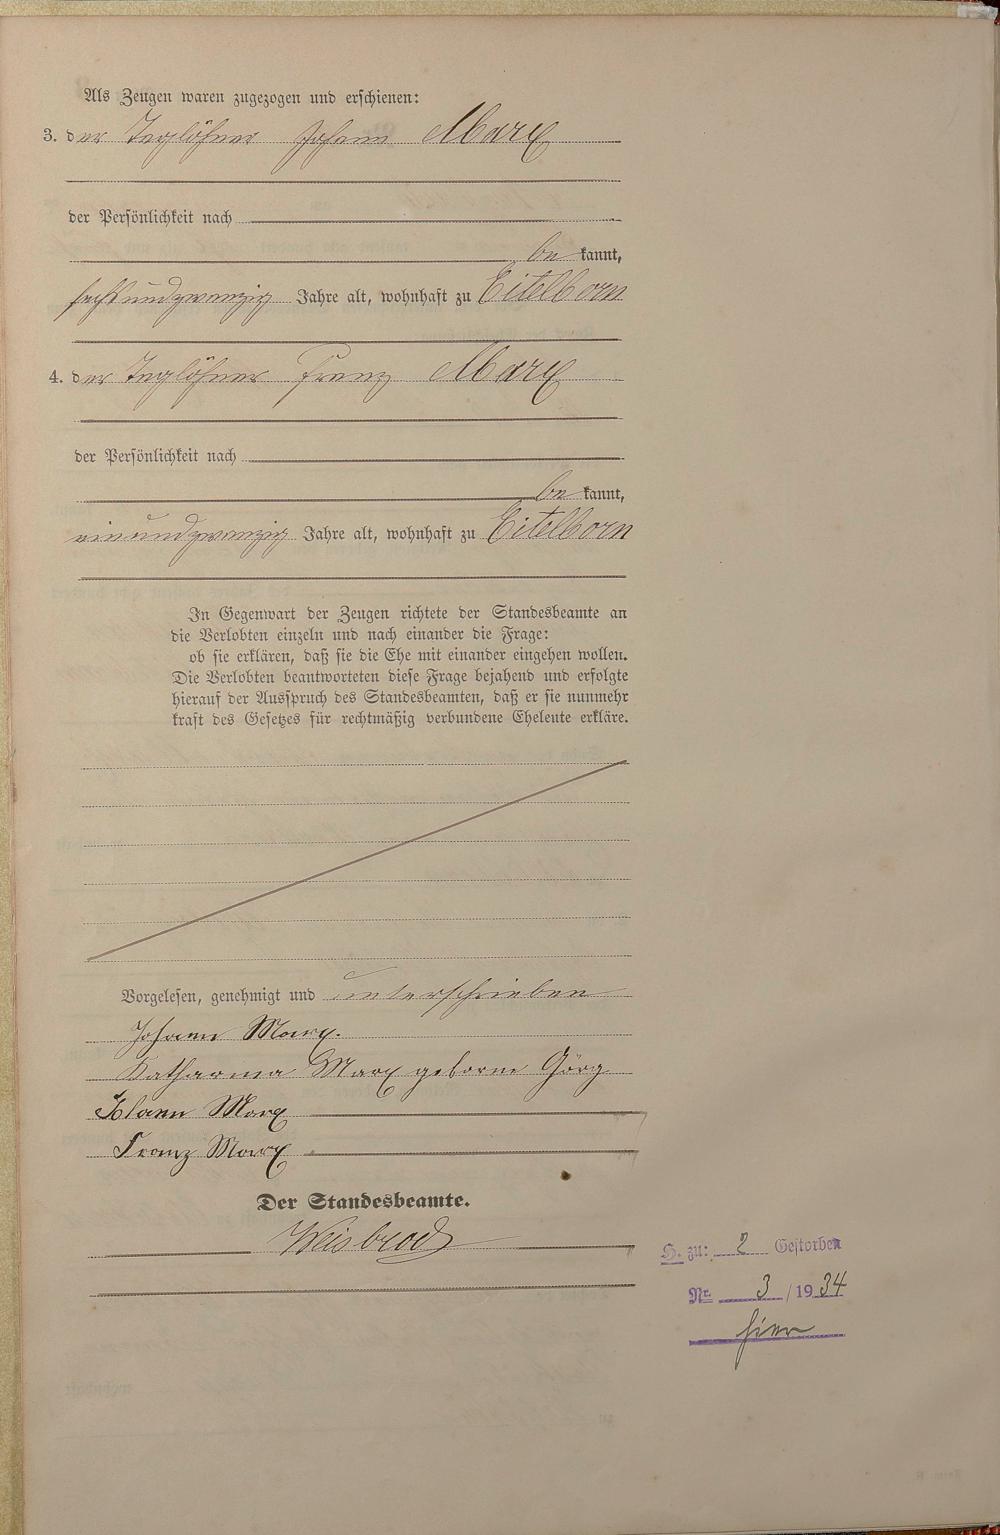 Als Zeugen waren zugezogen und erschienen:
3. der Taglöhner Johann Marx
der Persönlichkeit nach
bekannt,
sechsundzwanzig Jahre alt, wohnhaft zu Eitelborn
4. der Taglöhner Franz Marx
der Persönlichkeit nach
bekannt,
einundzwanzig Jahre alt, wohnhaft zu Eitelborn
In Gegenwart der Zeugen richtete der Standesbeamte an
die Verlobten einzeln und nach einander die Frage:
ob sie erklären, daß sie die Ehe mit einander eingehen wollen.
Die Verlobten beantworteten diese Frage bejahend und erfolgte
hierauf der Ausspruch des Standesbeamten, daß er sie nunmehr
kraft des Gesetzes für rechtmäßig verbundene Eheleute erkläre.
Vorgelesen, genehmigt und unterschrieben
Johann Marx.
Katharina Marx geborne Görg
Marx
Franz Marx
Der Standesbeamte.
Weisbrod
H. zu: 2 Gestorben
Nr. 3 /1934
hier